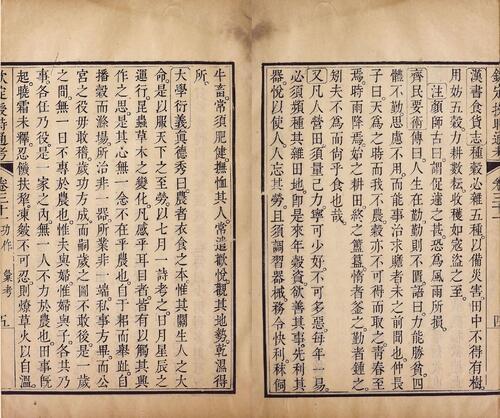 定授時通考
四
漢書食貨志種穀必雜五種以備災害田中不得有樹
用妨五穀力耕數耘收穫如寇盜之至
注顏師古曰謂促遽之甚恐為風雨所損
齊民要術傳曰人生在勤勤則不匱語曰力能勝貧四
體不勤思慮不用而能事治求贍者未之前聞也仲長
子曰天為之時而我不農穀亦不可得而取之青春至
焉時雨降焉始之耕田終之簠簋惰者釜之勤者鍾之
矧夫不為而尚乎食也哉
又凡人營田須量己力寧可少好不可多惡每年一易
必須頻種其雜田地即是來年穀資欲善其事先利其
器悅以使人人忘其勞且須調習器械務令快利秣飼
牛畜常須肥健撫恤其人常遣歡悅觀其地勢乾濕得
所
大學衍義真德秀曰農者衣食之本惟其關生人之大
命是以服天下之至勞以七月一詩考之日月星辰之
運行昆蟲草木之變化凡感乎耳目者皆有以觸其興
作之思是其心無一念不在乎農也自于耜而舉趾自
播穀而滌場所治非一器所業非一端私事方畢而公
宮之役毋敢稽歲功方成而嗣歲之圖不敢後是一歲
之間無一日不專於農也惟夫與婦惟婦與子各共乃
事各任乃役是一家之內無一人不力於農也田事既
起曉霜未釋忍饑扶犂凍皴不可忍則燎草火以自溫
欽定授時通考
卷三十一
功作
彙考
五